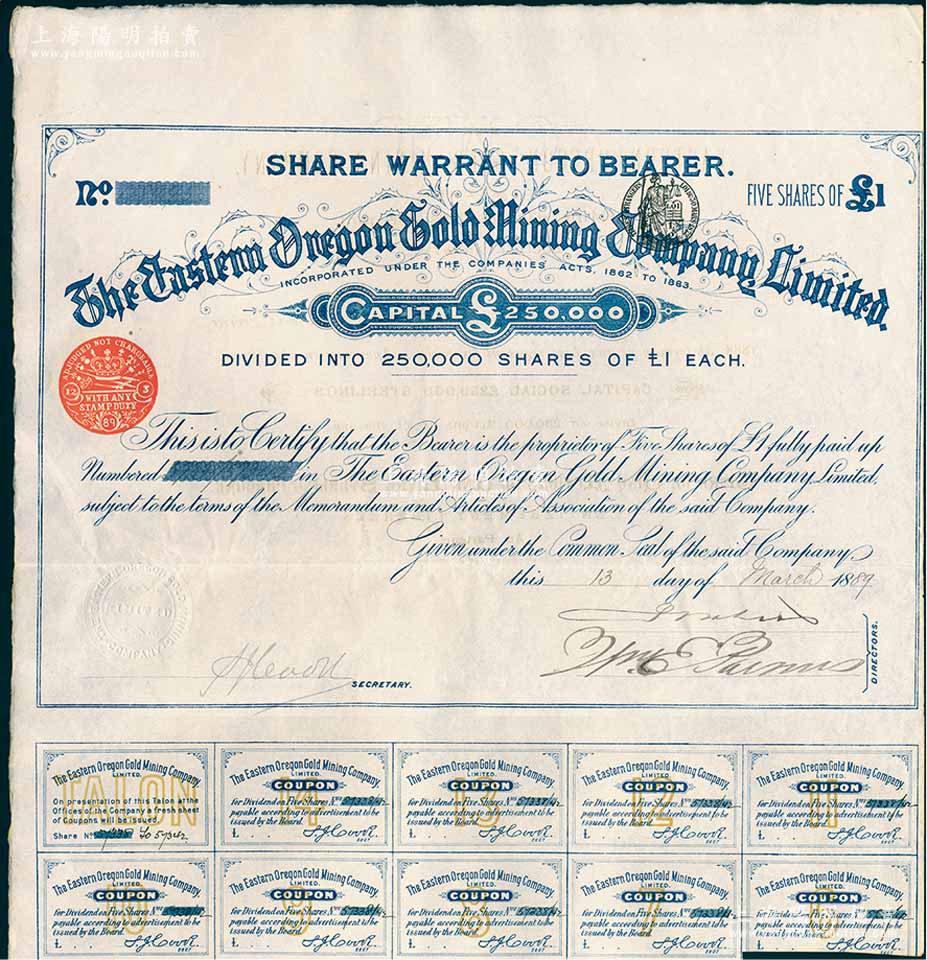 上海陽明拍賣
www.yangmingauction.com
SHARE WARRANT TO BEARER.
No.
FIVE SHARES OF £1
The Eastern Oregon Gold Mining Company Limited.
INCORPORATED UNDER THE COMPANIES ACTS, 1862 TO 1883.
CAPITAL £250,000
DIVIDED INTO 250,000 SHARES OF £1 EACH.
ADJUDGED NOT CHARGEABLE
12 3
WITH ANY
STAMP DUTY
89
This is to Certify that the Bearer is the proprietor of Five Shares of £1 fully paid up
Numbered in The Eastern Oregon Gold Mining Company, Limited,
subject to the terms of the Memorandum and Articles of Association of the said Company.
Given under the Common Seal of the said Company
this 13 day of March 1889
DIRECTORS.
SECRETARY.
TALON
The Eastern Oregon Gold Mining Company,
LIMITED.
On presentation of this Talon at the
Offices of the Company a fresh sheet
of Coupons will be issued.
Share Nos. to 57342
14
The Eastern Oregon Gold Mining Company,
LIMITED.
COUPON
for Dividend on Five Shares, Nos. 57338/42
payable according to advertisement to be
issued by the Board.
£ S.J. Cook
SECY.
13
The Eastern Oregon Gold Mining Company,
LIMITED.
COUPON
for Dividend on Five Shares, Nos. 57338/42
payable according to advertisement to be
issued by the Board.
£ S.J. Cook
SECY.
12
The Eastern Oregon Gold Mining Company,
LIMITED.
COUPON
for Dividend on Five Shares, Nos. 57338/42
payable according to advertisement to be
issued by the Board.
£ S.J. Cook
SECY.
11
The Eastern Oregon Gold Mining Company,
LIMITED.
COUPON
for Dividend on Five Shares, Nos. 57338/42
payable according to advertisement to be
issued by the Board.
£ S.J. Cook
SECY.
10
The Eastern Oregon Gold Mining Company,
LIMITED.
COUPON
for Dividend on Five Shares, Nos. 57338/42
payable according to advertisement to be
issued by the Board.
£ S.J. Cook
SECY.
The Eastern Oregon Gold Mining Company,
LIMITED.
COUPON
for Dividend on Five Shares, Nos. 57338/42
payable according to advertisement to be
issued by the Board.
£ S.J. Cook
SECY.
The Eastern Oregon Gold Mining Company,
LIMITED.
COUPON
for Dividend on Five Shares, Nos. 57338/42
payable according to advertisement to be
issued by the Board.
£ S.J. Cook
SECY.
The Eastern Oregon Gold Mining Company,
LIMITED.
COUPON
for Dividend on Five Shares, Nos. 57338/42
payable according to advertisement to be
issued by the Board.
£ S.J. Cook
SECY.
The Eastern Oregon Gold Mining Company,
LIMITED.
COUPON
for Dividend on Five Shares, Nos.
payable according to advertisement to be
issued by the Board.
£ S.J. Cook